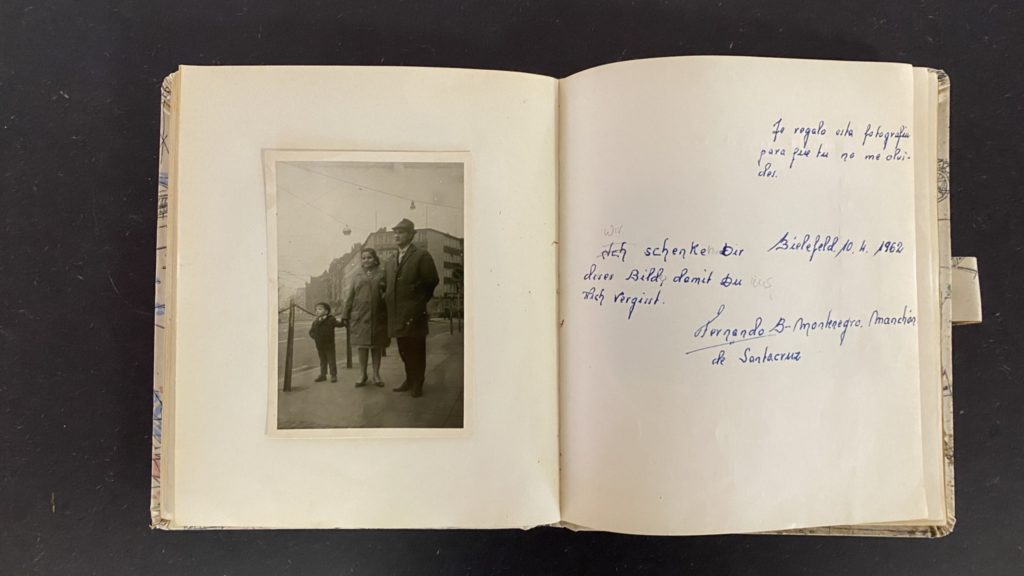 Te regalo esta fotografía
para que tu no me olvi-
des.
Bielefeld, 10. 4. 1962
wir
Ich schenke Dir
dieses Bild, damit Du
Mich vergisst.
Fernando B- Montenegro. Manchón
de Santacruz